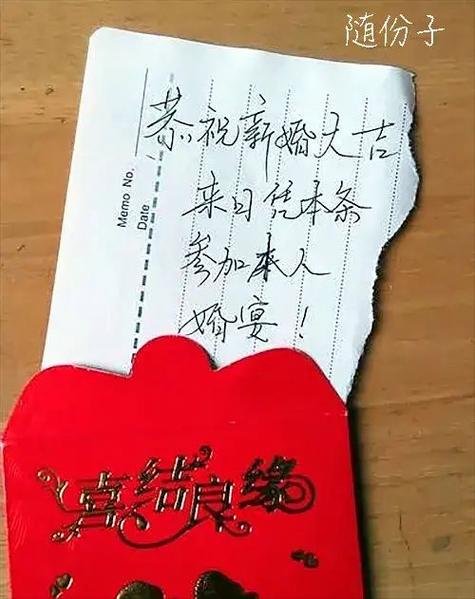 随份子
恭祝新婚大吉
来日凭本条
参加本人
婚宴！
Memo No.
Date
喜结良缘